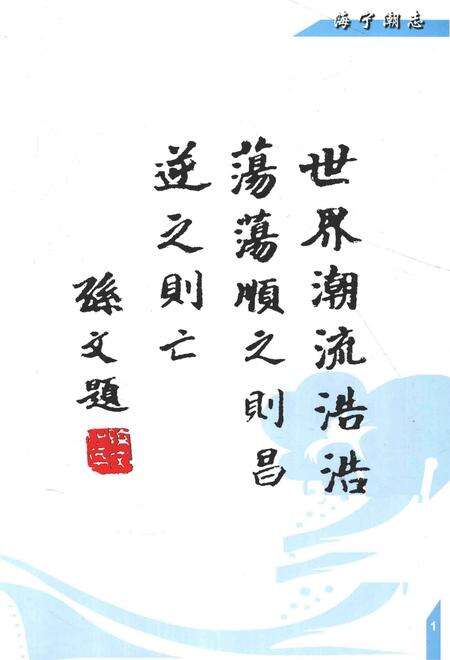 海宁潮志
世界潮流浩浩
蕩蕩順之則昌
逆之則亡
孫文題
1